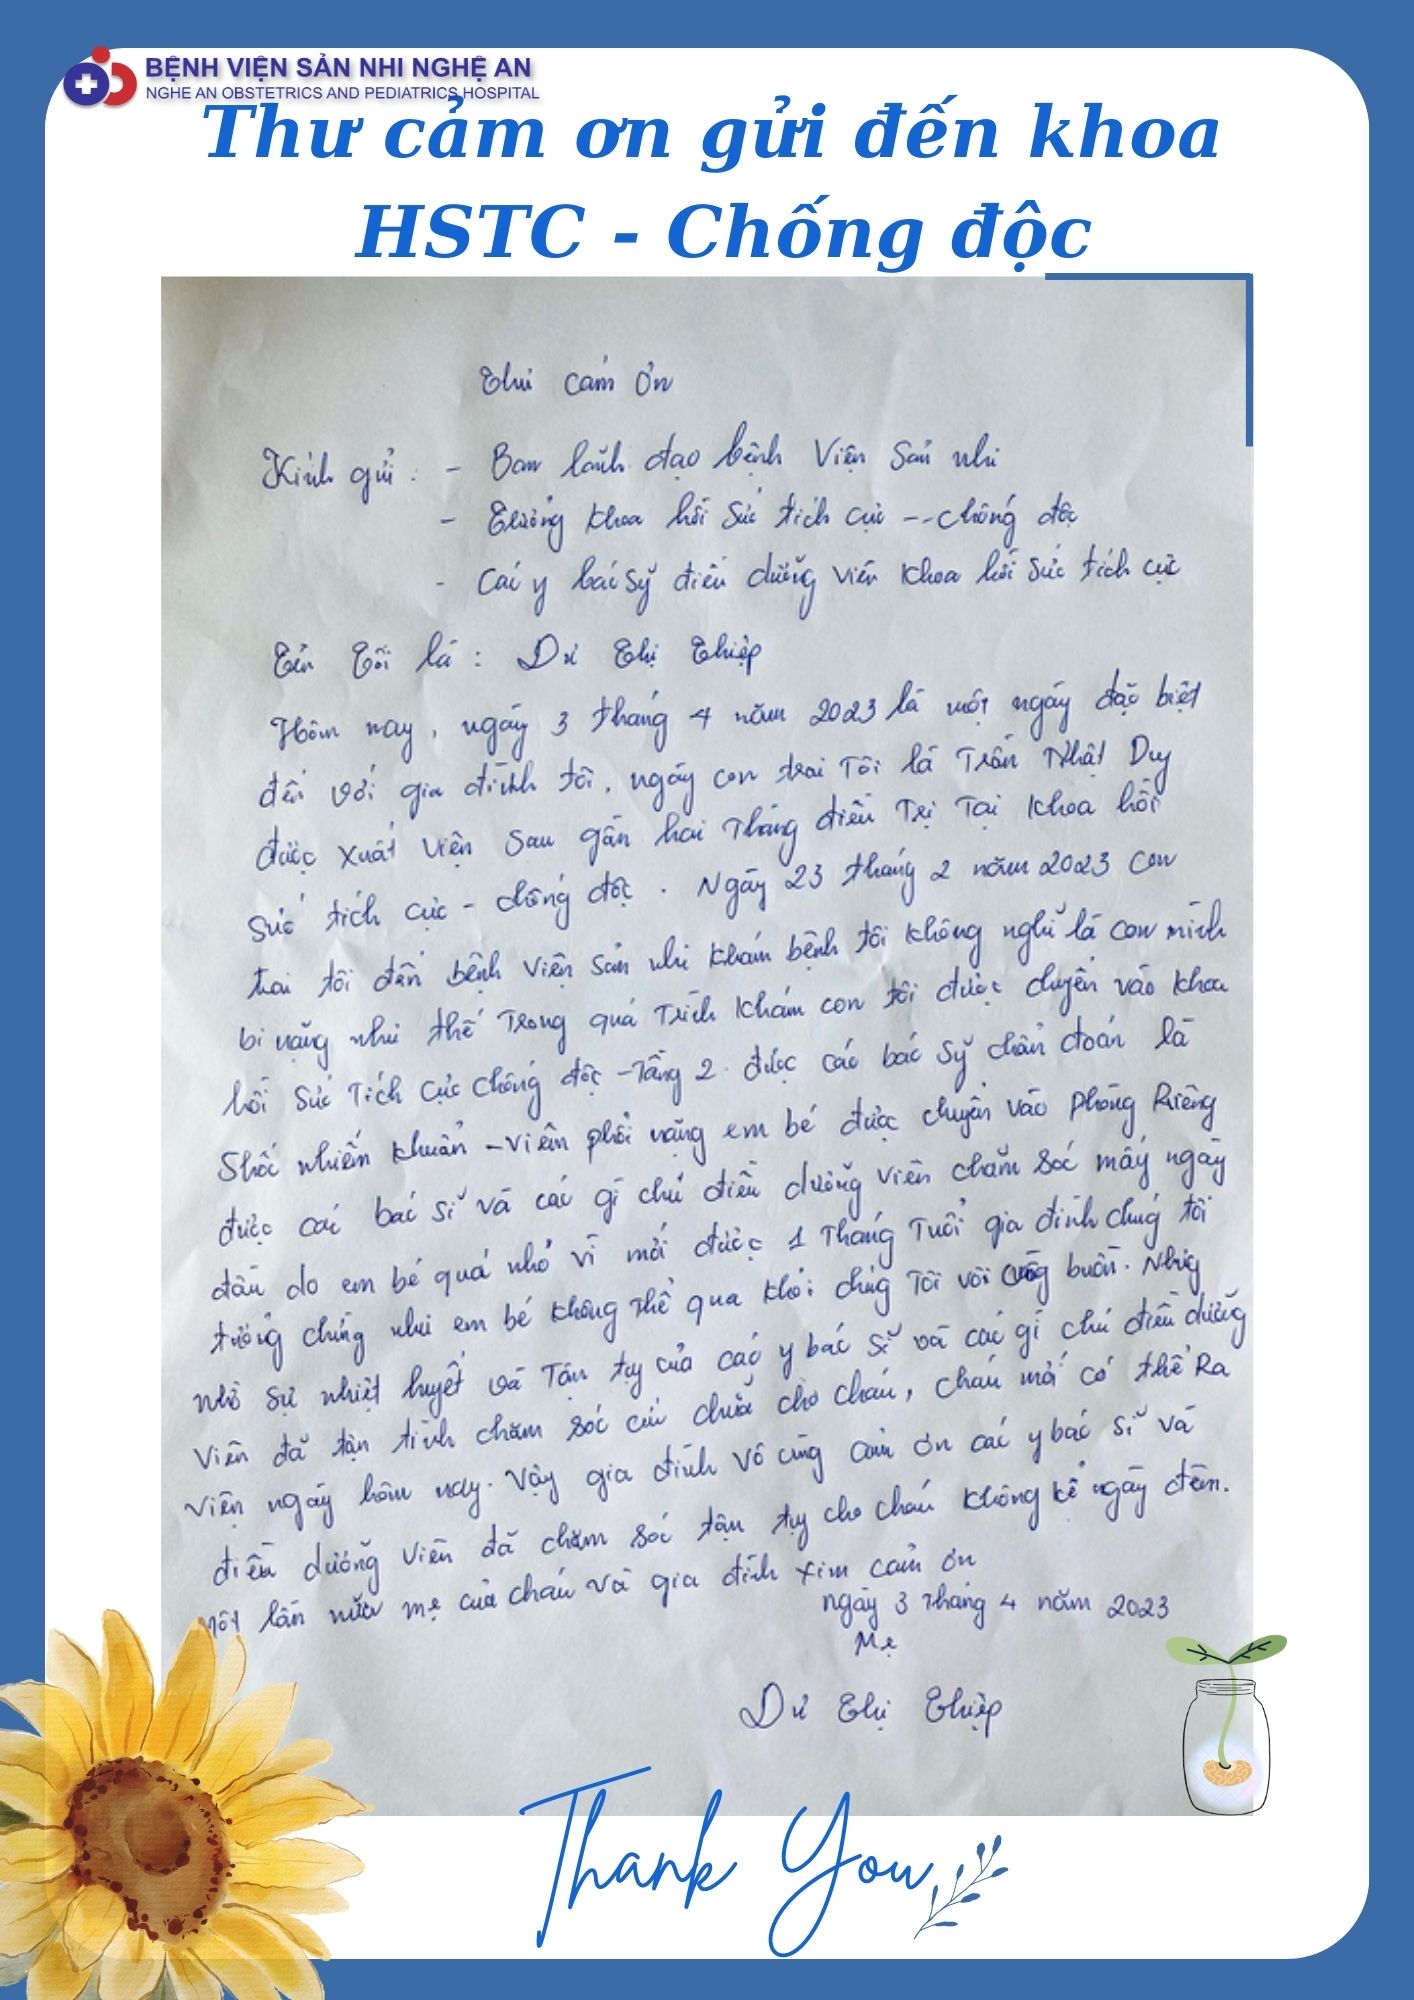 BỆNH VIỆN SẢN NHI NGHỆ AN
NGHE AN OBSTETRICS AND PEDIATRICS HOSPITAL
Thư cảm ơn gửi đến khoa
HSTC - Chống độc
Thư cảm ơn
Kính gửi: - Ban lãnh đạo bệnh Viện Sản nhi
- Trưởng khoa hồi Sức tích cực -- chống độc
- Các y bác sỹ điều dưỡng viên khoa hồi sức tích cực
Tên Tôi là : Dư Thị Thiệp
Hôm nay, ngày 3 tháng 4 năm 2023 là một ngày đặc biệt
đến với gia đình tôi, ngày con trai Tôi là Trần Nhật Duy
được xuất viện sau gần hai Tháng điều Trị Tại khoa hồi
sức tích cực - chống độc. Ngày 23 tháng 2 năm 2023 con
trai tôi đến bệnh viện sản nhi khám bệnh tôi không nghĩ là con mình
bị nặng như thế Trong quá Trình khám con tôi được chuyển vào khoa
hồi sức Tích cực chống độc - Tầng 2. được các bác sỹ chẩn đoán là
Shốc nhiễm khuẩn - viêm phổi nặng em bé được chuyển vào phòng Riêng
được các bác sĩ và các gì chú điều dưỡng viên chăm sóc mấy ngày
đầu do em bé quá nhỏ vì mới được 1 Tháng Tuổi gia đình chúng tôi
tưởng chừng như em bé không thể qua khỏi chúng Tôi vô cùng buồn. Nhưng
nhờ sự nhiệt huyết và Tận tụy của các y bác sĩ và các gì chú điều dưỡng
viên đã tận tình chăm sóc cứu chữa cho cháu, cháu mới có thể Ra
viện ngày hôm nay. Vậy gia đình vô cùng cảm ơn các y bác sĩ và
điều dưỡng viên đã chăm sóc tận tụy cho cháu không kể ngày đêm.
Một lần nữa mẹ của cháu và gia đình xin cảm ơn
ngày 3 tháng 4 năm 2023
Mẹ
Dư Thị Thiệp
Thank You